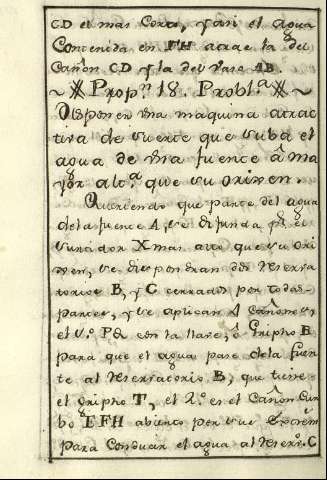 CD el mas Corto, y asi el agua
Contenida en FH atrae la del
Cañon CD y la del Vaso AB.
Propn 18. Probla
Disponer vna maquina atrac
tiva de suerte que suba el
agua de vna fuente â ma
yor alta que su orixen.
Queriendo que parte del agua
de la fuente A, se difunda pr el
surtidor X mas alto que su ori
xen, se dispondran dos reserva
torios B, y C cerrados por todas
partes, y se aplican 4 cañones
el 1o PQ con la llave, ô Gripho R
para que el agua pase de la fuen
te al reservatorio B, que tiene
el gripho T, el 2o es el Cañon Cur
bo EFH abierto por sus extrem
para conducir el agua al reservo C